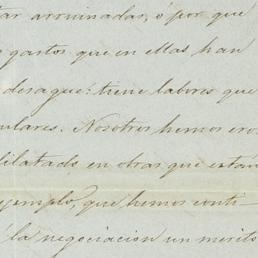 tar arruinadas, ó por que
s gastos que en ellas han
desagüe: tiene labores que
ulares. Nosotros hemos ero
dilatado en obras que estan
ejemplo, que hemos conti-
la negociacion un merito